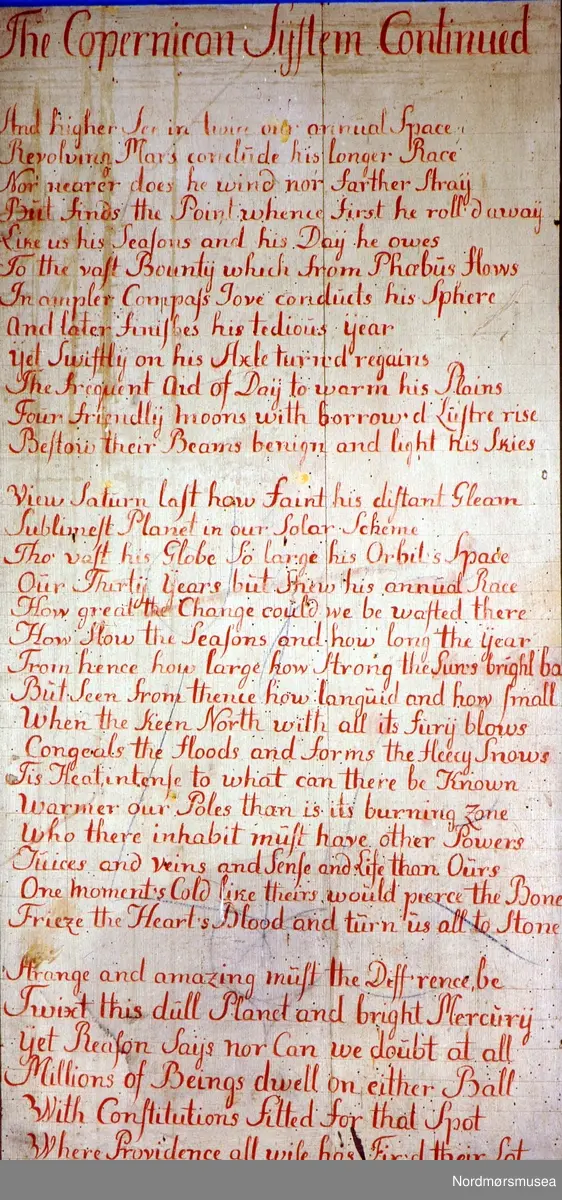 The Copernicon System Continued
And higher See in twice our annual Space
Revolving Mars conclude his longer Race
Nor nearer does he wind nor farther Stray
But finds the Point whence first he roll'd away
Like us his Seasons and his Day he owes
To the vast Bounty which from Phœbus flows
In ampler Compass Jove conducts his Sphere
And later finishes his tedious year
yet Swiftly on his Axle turn'd regains
The frequent Aid of Day to warm his Plains
Four friendly moons with borrow'd Lustre rise
Bestow their Beams benign and light his Skies
View Saturn last how faint his distant Gleam
Sublimest Planet in our Solar Scheme
Tho' vast his Globe So large his Orbit's Space
Our Thirty Years but Shew his annual Race
How great the Change could we be wafted there
How Slow the Seasons and how long the Year
From hence how large how Strong the Sun's bright ba
But Seen from thence how languid and how small
When the keen North with all its fury blows
Congeals the floods and forms the fleecy Snows
Tis Heat intense to what can there be Known
Warmer our Poles than is its burning Zone
Who there inhabit must have other Powers
Juices and veins and Sense and Life than Ours
One moment's Cold like theirs would pierce the Bone
Frieze the Heart's Blood and turn us all to Stone
Strange and amazing must the Diff'rence be
Twixt this dull Planet and bright Mercury
yet Reason Says nor Can we doubt at all
Millions of Beings dwell on either Ball
With Constitutions fitted for that Spot
Where Providence all wise has Fix'd their Lot
Nordmørsmusea